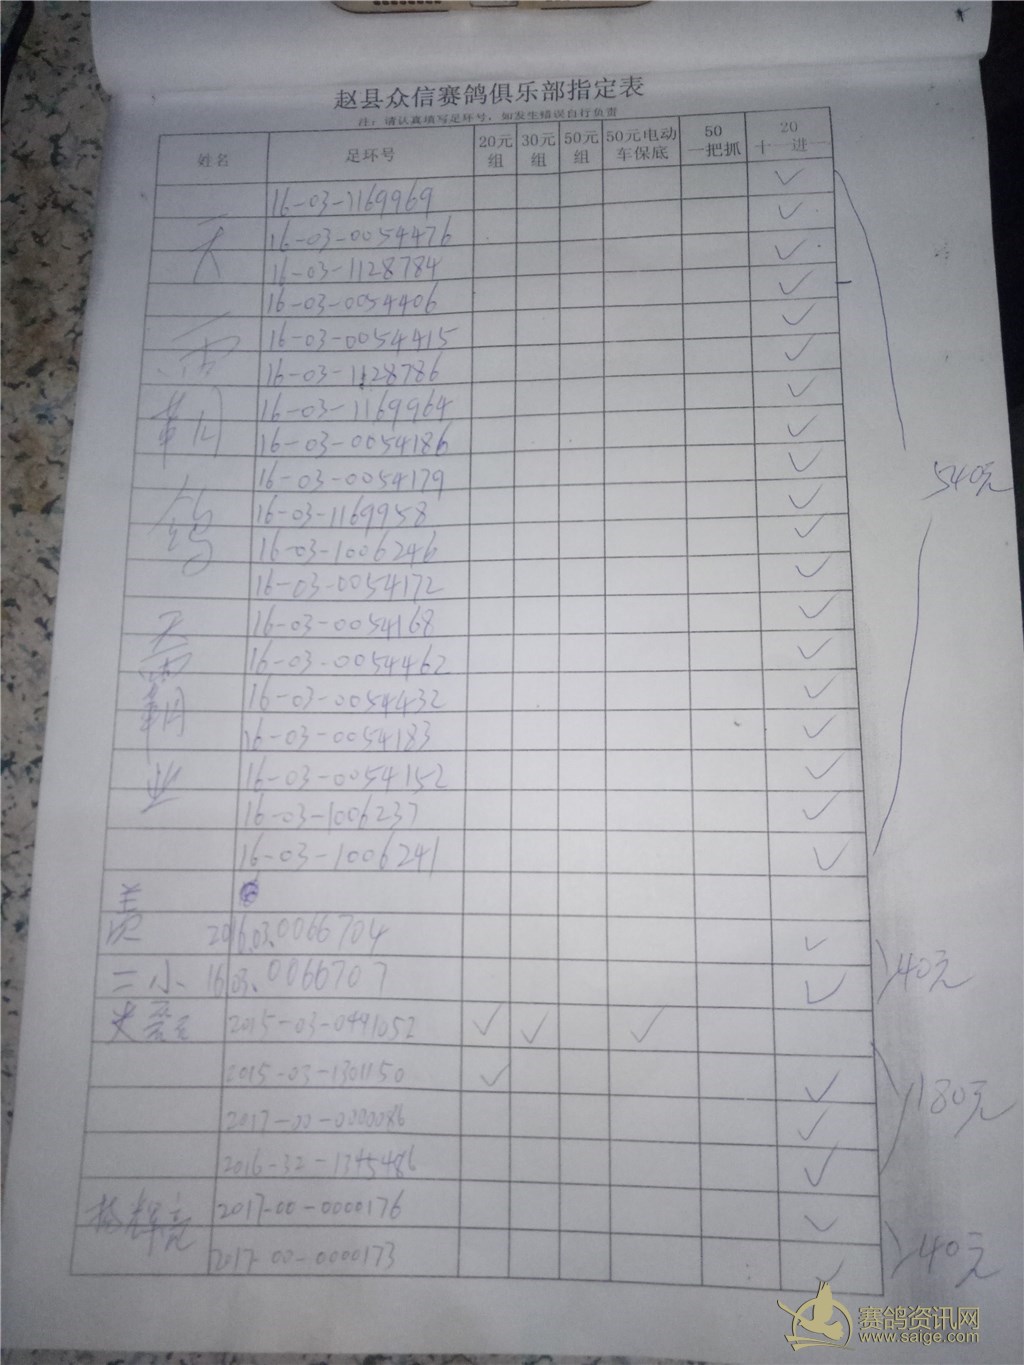 赵县众信赛鸽俱乐部指定表
注：请认真填写足环号，如发生错误自行负责
姓名 足环号 20元组 30元组 50元组 50元电动车保底 50一把抓 20十一进一
16-03-1169969 ✓
16-03-0054476 ✓
天 16-03-1128784 ✓
16-03-0054406 ✓
16-03-0054415 ✓
雨 16-03-1128786 ✓
16-03-1169964 ✓
朝 16-03-0054186 ✓
16-03-0054179 ✓
16-03-1169958 ✓
鸽 16-03-1006246 ✓
16-03-0054172 ✓
天 16-03-0054168 ✓
16-03-0054462 ✓
霸 16-03-0054432 ✓
16-03-0054183 ✓
业 16-03-0054152 ✓
16-03-1006237 ✓
16-03-1006241 ✓
540元
2016.03.0066704 ✓
二小 16.03.0066707 ✓
40元
2015-03-0491052 ✓ ✓ ✓
2015-03-1301150 ✓ ✓
2017-00-0000086 ✓
2016-32-1345486 ✓
180元
杨辉亮 2017-00-0000176 ✓
2017-00-0000173 ✓
40元
赛鸽资讯网
www.saige.com